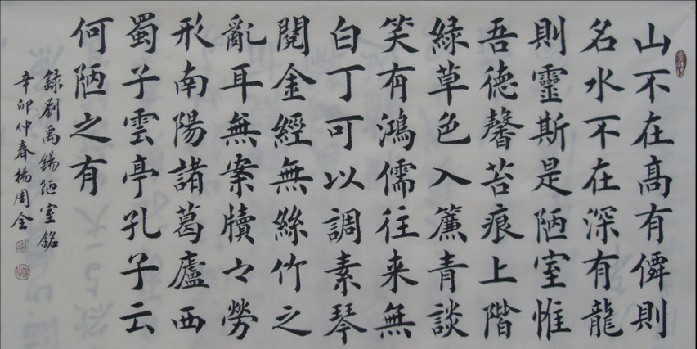 山不在高有僊則
名水不在深有龍
則靈斯是陋室惟
吾德馨苔痕上階
綠草色入簾青談
笑有鴻儒往来無
白丁可以調素琴
閱金經無絲竹之
亂耳無案牘之勞
形南陽諸葛廬西
蜀子雲亭孔子云
何陋之有
錄劉禹錫陋室銘
辛卯仲春楊周全